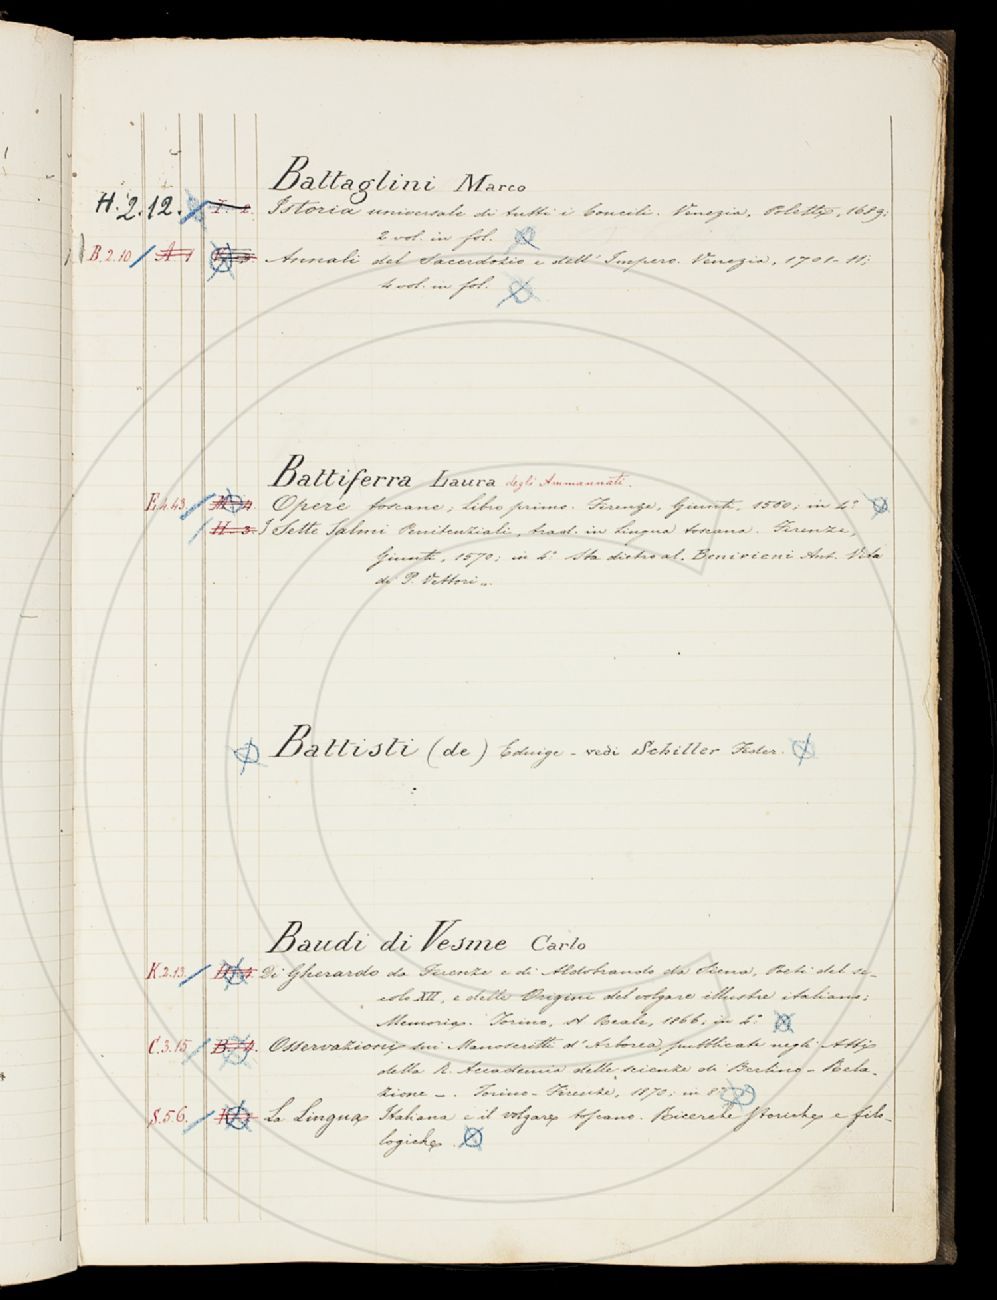 Battaglini Marco
H.2.12. Istoria universale di tutti i Concili. Venezia, Poletti, 1689;
2 vol. in fol.
B.2.10 A 1 Annali del Sacerdozio e dell' Impero. Venezia, 1701-11;
4 vol. in fol.
Battiferra Laura degli Ammannati.
E.4.43 Opere toscane; libro primo. Firenze, Giunti, 1560; in 4°
H. 3. I Sette Salmi Penitenziali, trad. in lingua toscana. Firenze,
Giunti, 1570; in 4° Sta dietro al. Benivieni Ant. Vita
di P. Vettori ..
Battisti (de) Eduige - vedi Schiller Feder.
Baudi di Vesme Carlo
K.2.13. Di Gherardo da Firenze e di Aldobrando da Siena, Poeti del se-
colo XII, e delle Origini del volgare illustre italiano;
Memoria. Torino, St Reale, 1866; in 4°
C.3.15 Osservazioni sui Manoscritti d'Arborea pubblicate negli Atti
della R. Accademia delle scienze di Berlino - Rela-
zione -. Torino-Firenze, 1870; in 8°
S.5.6. La Lingua Italiana e il volgare toscano. Ricerche storiche e filo-
logiche.